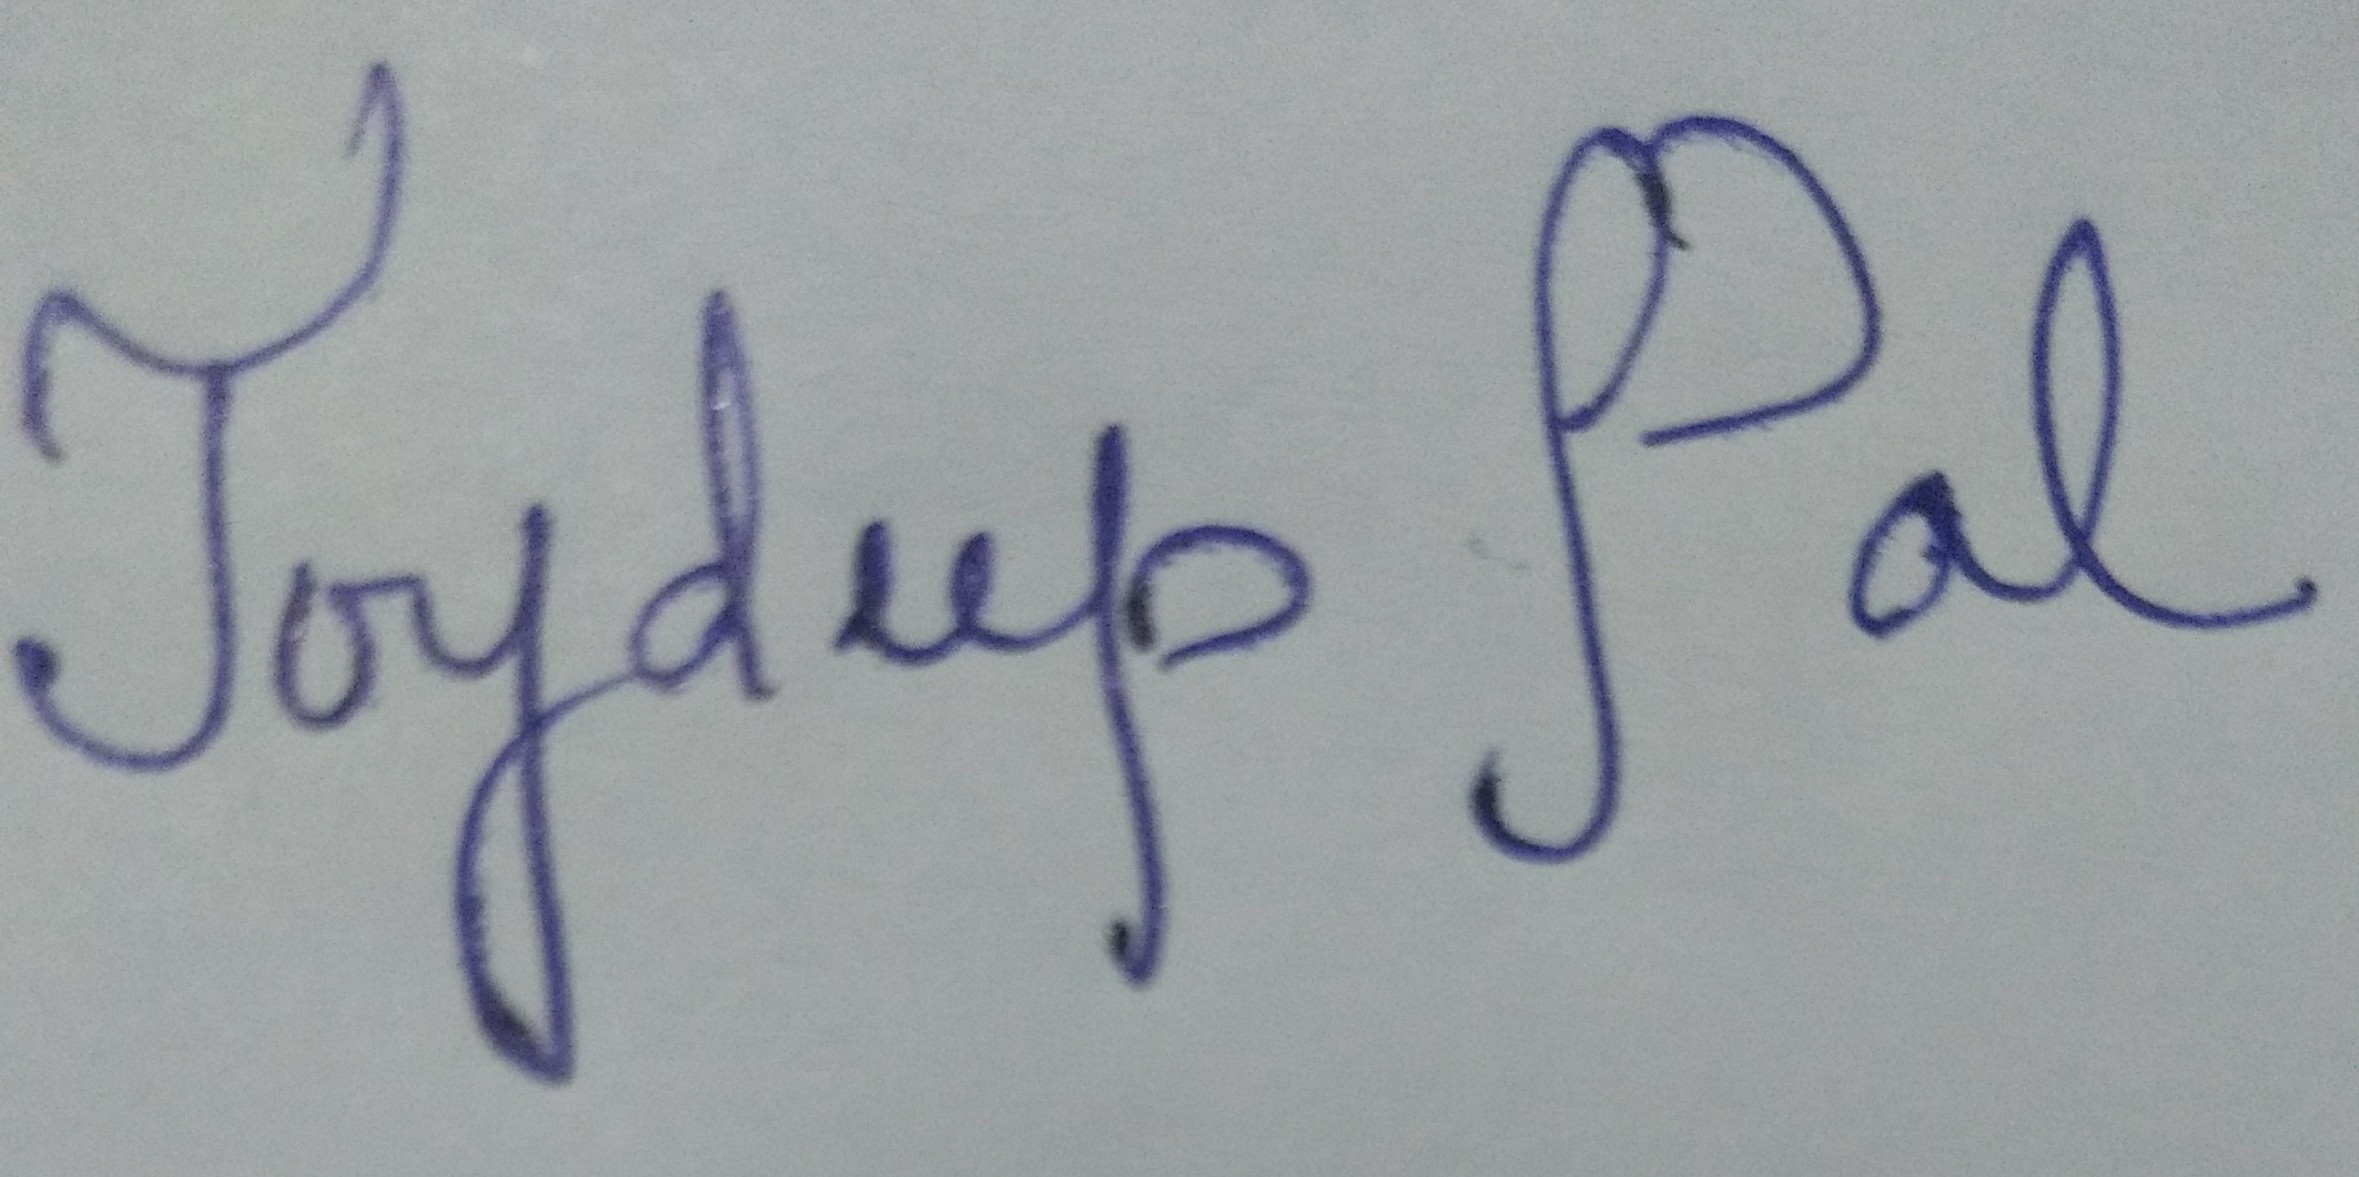 Joydeep Pal